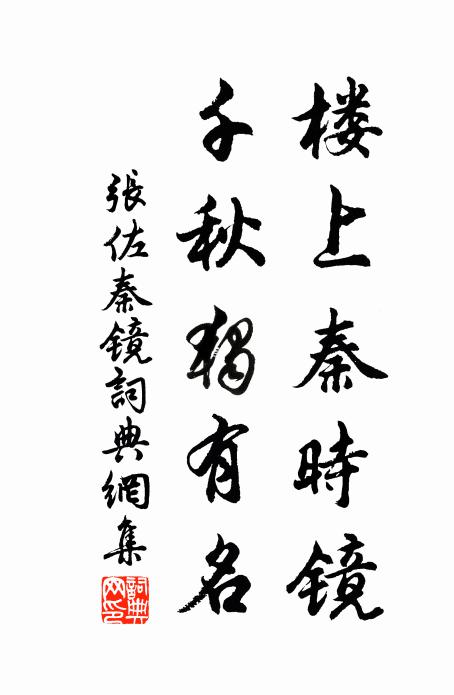 楼上秦時鏡
千秋獨有名
張佐秦鏡詞典網集
詞典网印